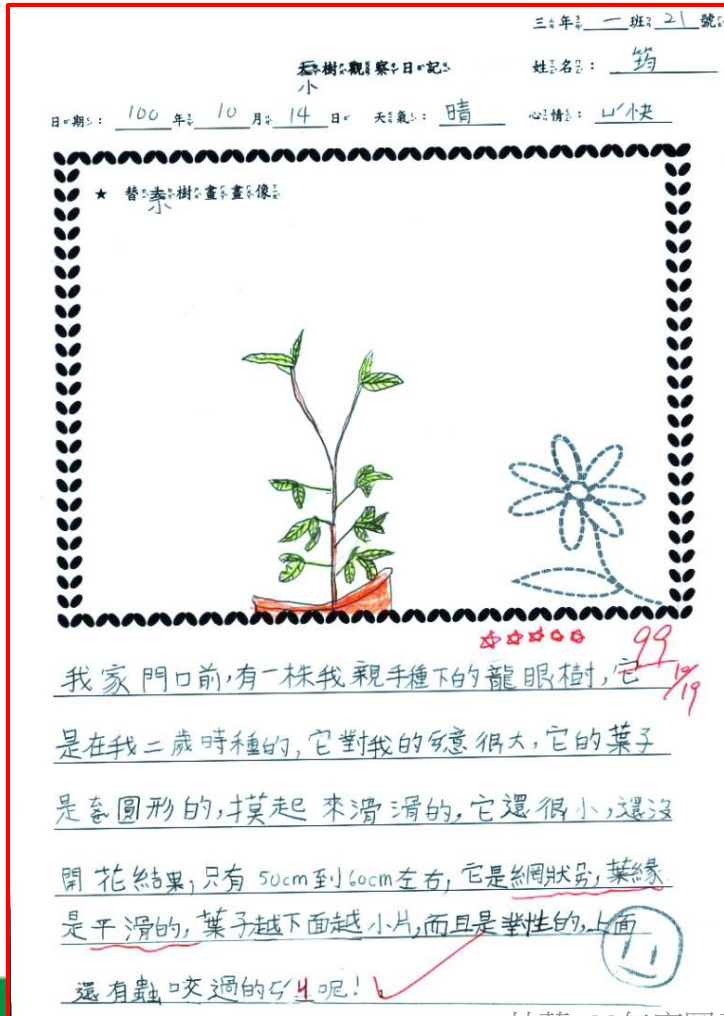 三年一班21號
大樹觀察日記
小
姓名：筠
日期：100年10月14日 天氣：晴 心情：ㄩˊ快
★ 替大樹畫畫像
小
99
10/19
我家門口前,有一株我親手種下的龍眼樹,它
是在我二歲時種的,它對我的意很大,它的葉子
是圓形的,摸起來滑滑的,它還很小,還沒
開花結果,只有50cm到60cm左右,它是網狀,葉緣
是平滑的,葉子越下面越小片,而且是對性的,上面
還有蟲咬過的呢!